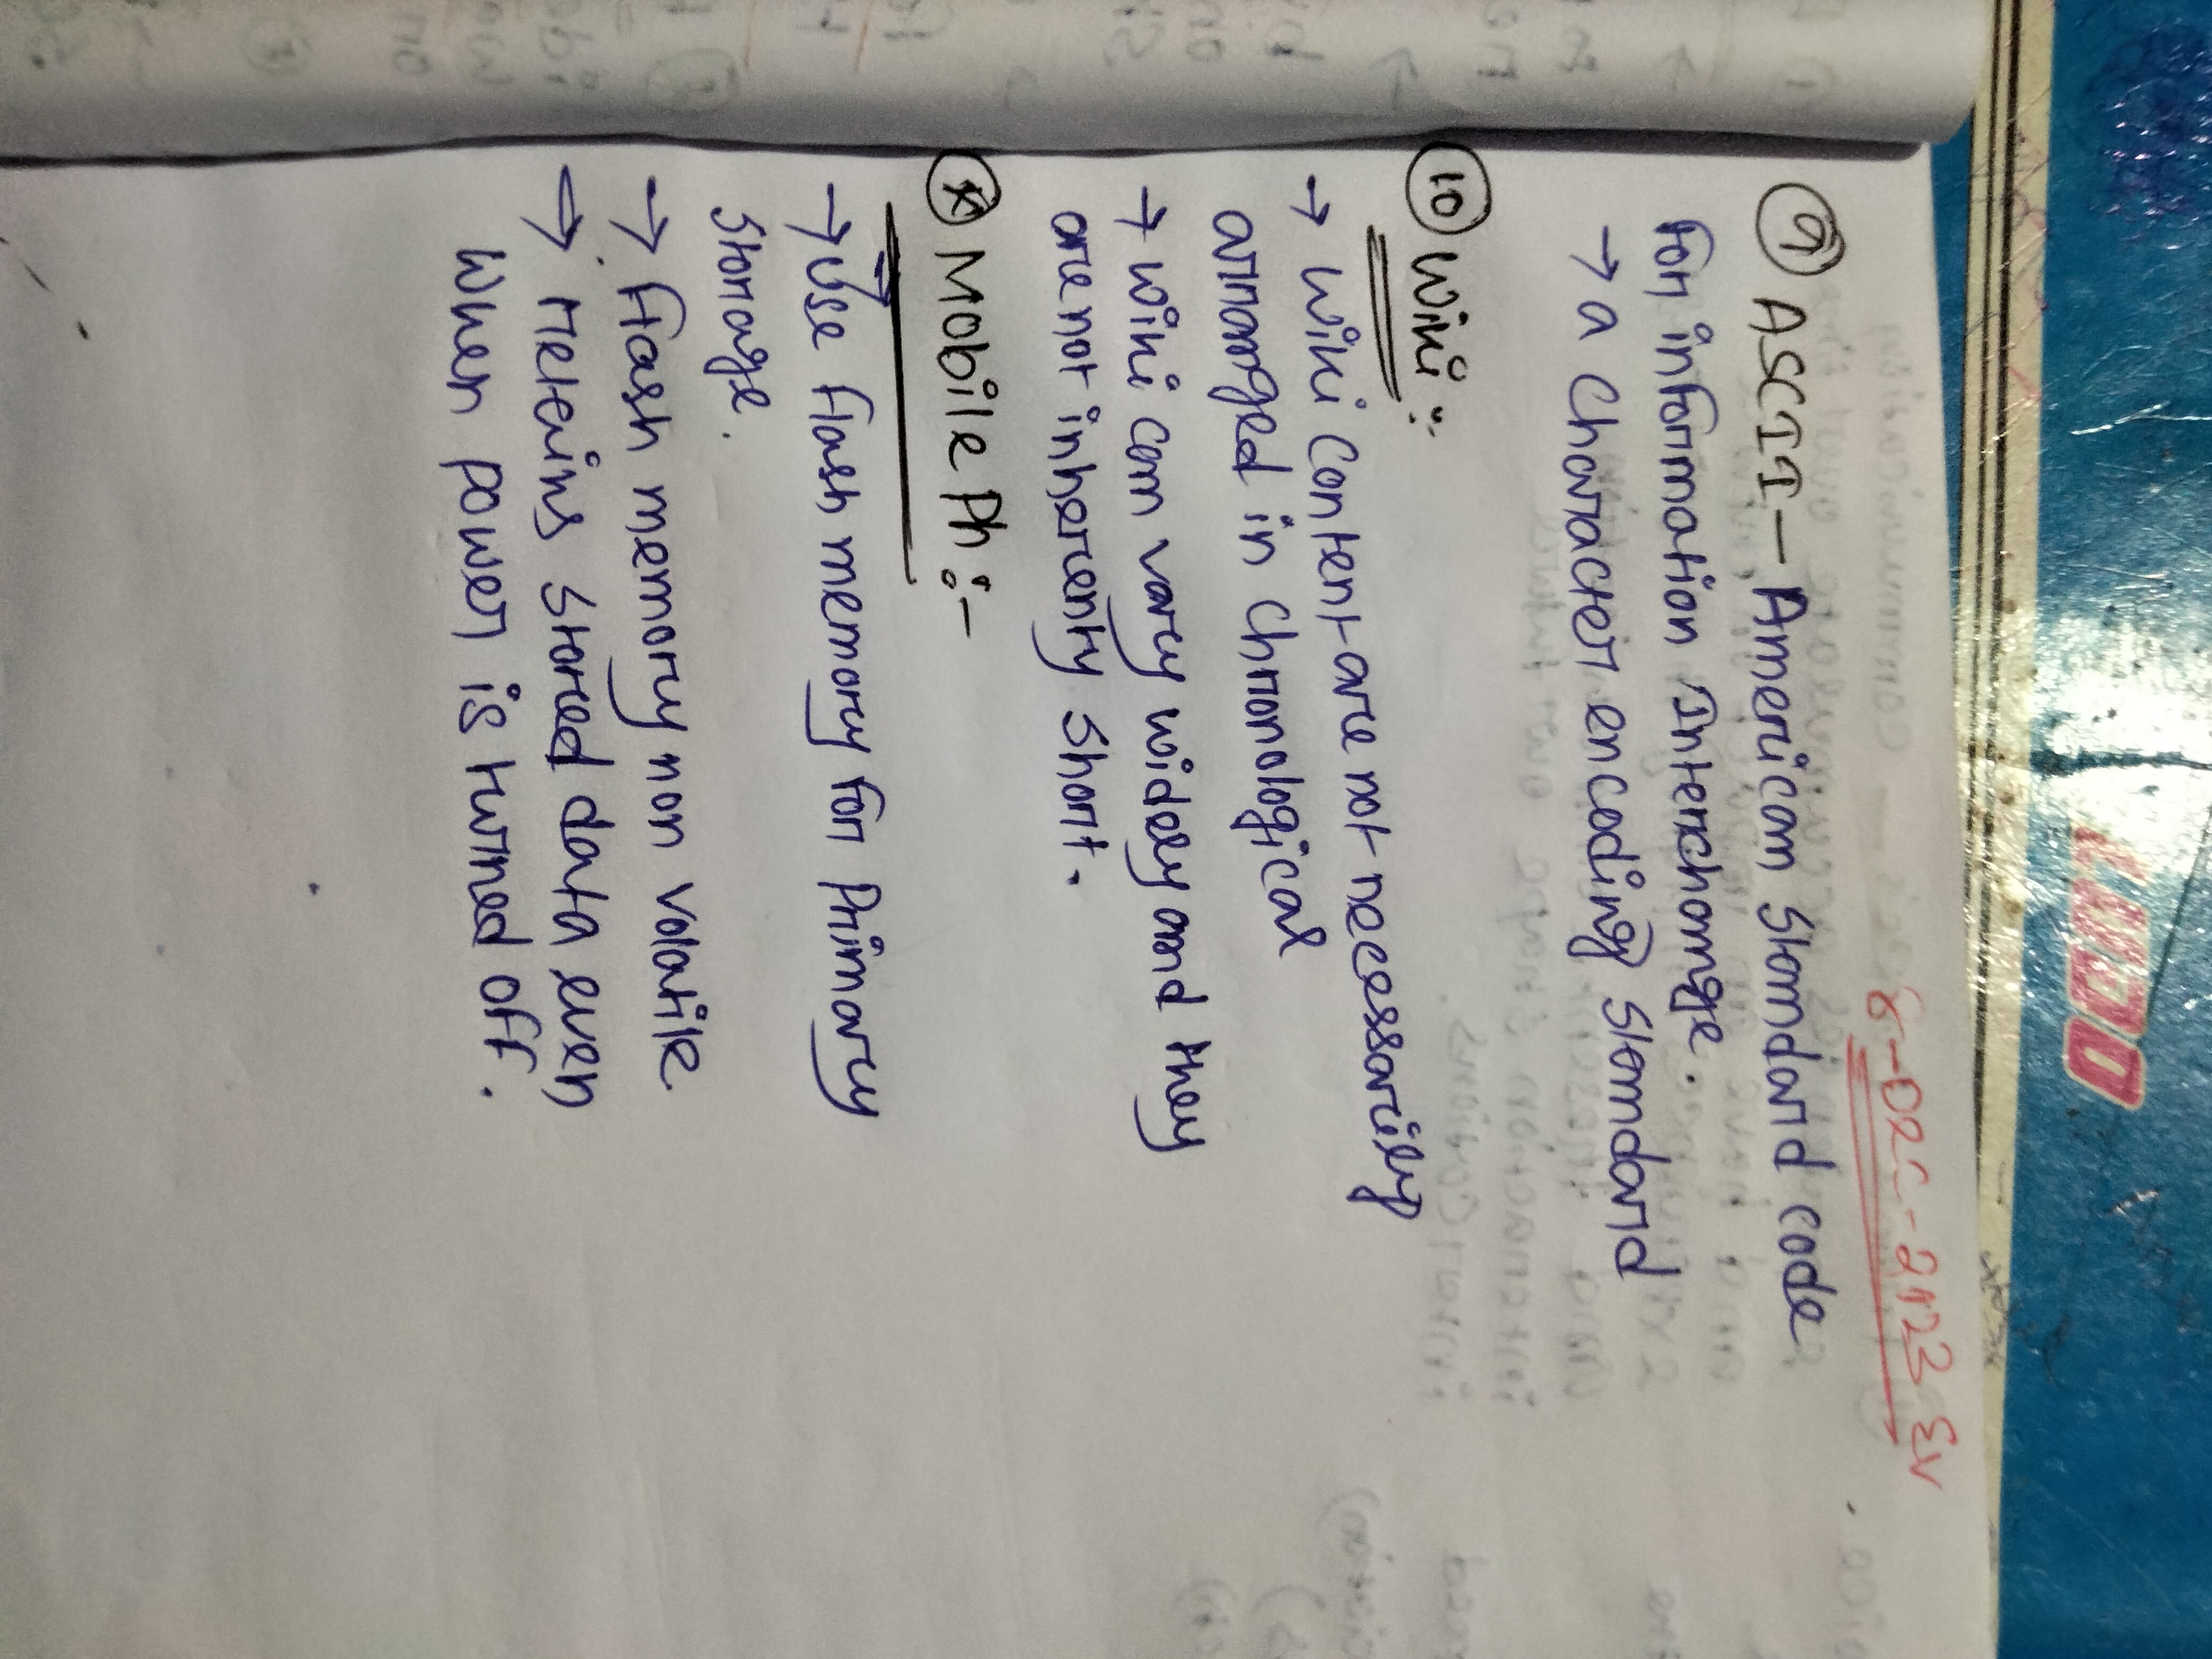 8-Dec-2123 EV
⑨ ASCII - American Standard code
for information Interchange.
→ a character encoding standard
⑩ Wiki :-
→ Wiki content are not necessarily
arranged in chronological
→ Wiki can vary widely and they
are not inherently short.
* Mobile Ph :-
→ Use flash memory for Primary
storage.
→ flash memory non volatile
→ retains stored data even
when power is turned off.
LUDO